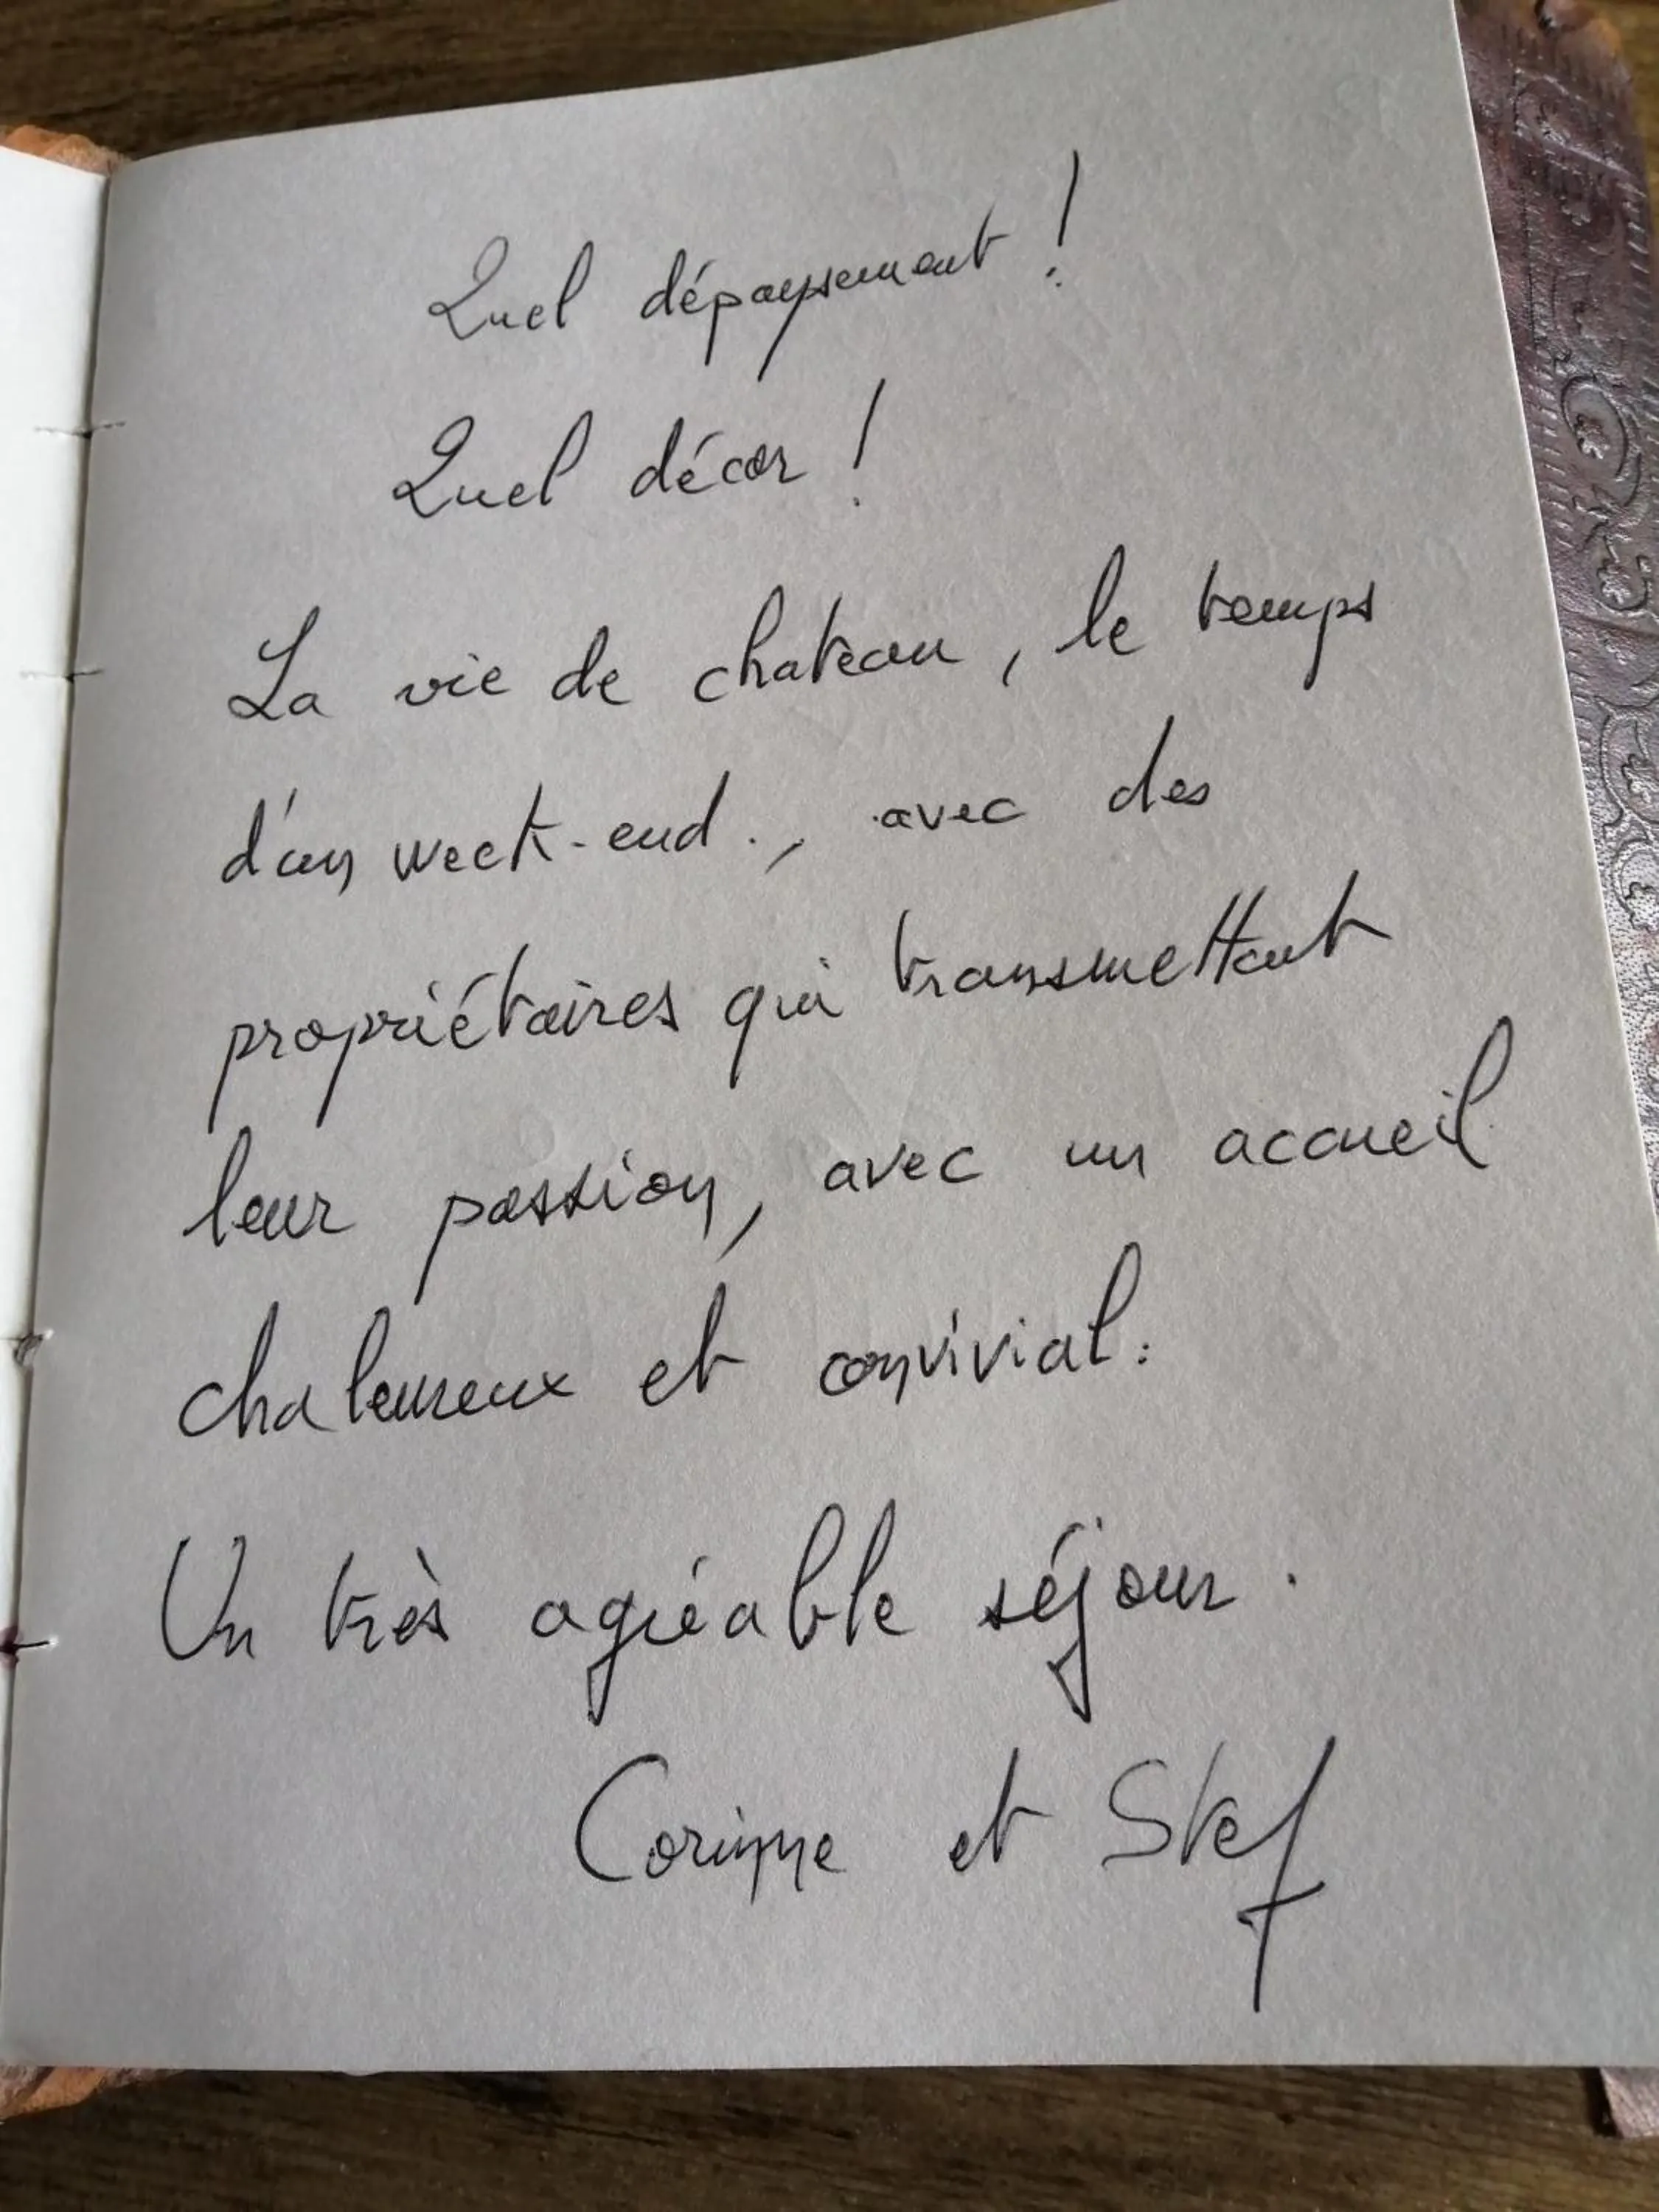 Quel dépaysement !
Quel décor !
La vie de chateau, le temps
d'un week-end., avec des
propriétaires qui transmettent
leur passion, avec un accueil
chaleureux et convivial.
Un très agréable séjour.
Corinne et Stef